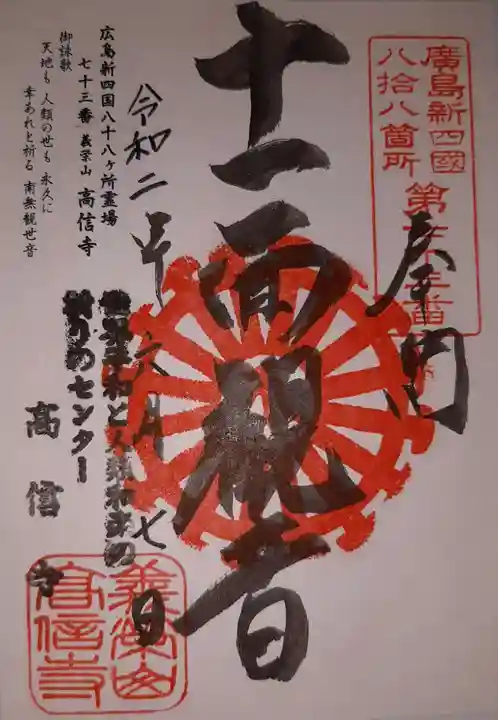 廣島新四國
八拾八箇所
第七十三番
奉拝
十一面観音
令和二年六月七日
広島新四国八十八ヶ所霊場
七十三番 義栄山 高信寺
御詠歌
天地も 人類の世も 永久に
幸あれと祈る 南無観世音
世界平和と人類永遠の
しあわせセンター
高信寺
義榮山
高信寺